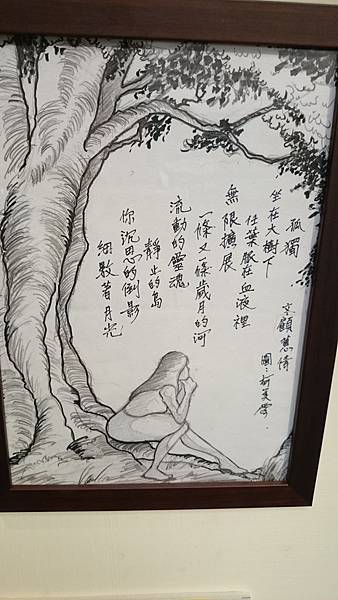 孤獨
坐在大樹下
任葉脈在血液裡
無限擴展
一條又一條歲月的河
流動的靈魂
靜止的島
你沉思的倒影
細數著月光
文顧蕙倩
圖:柯美雪